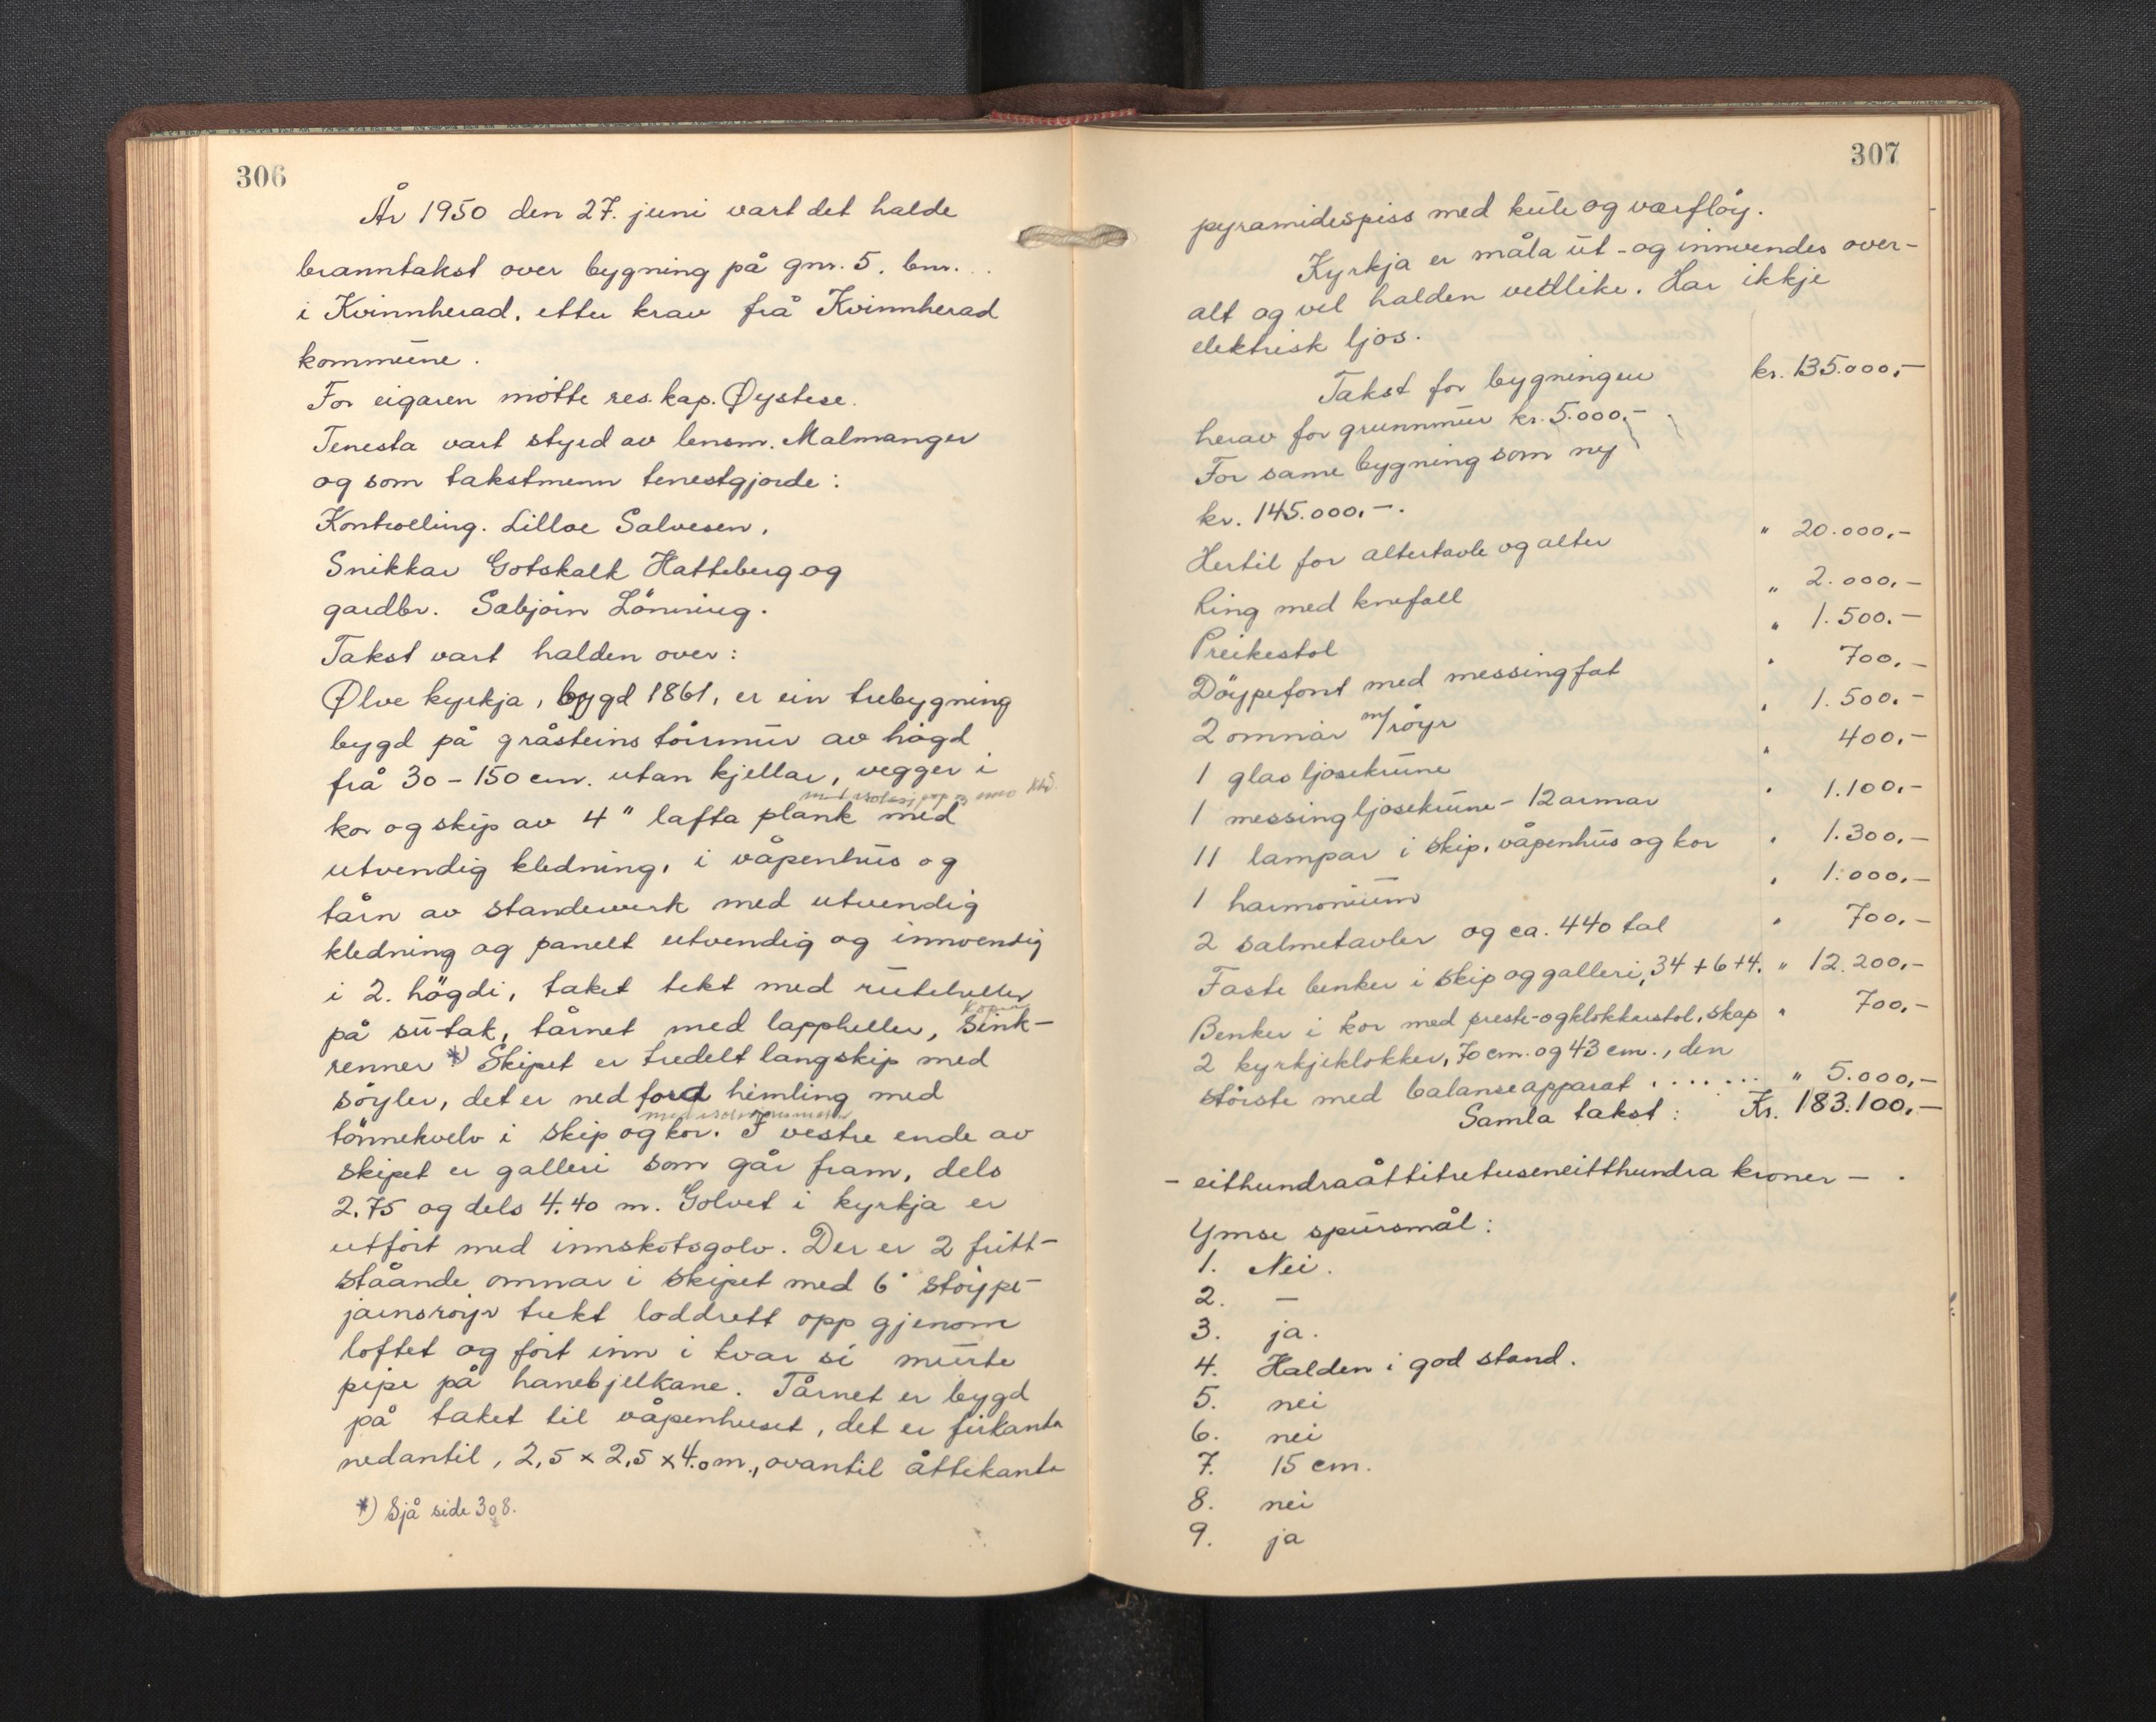 306
År 1950 den 27. juni vart det halde
branntakst over bygning på gnr. 5. bnr. . .
i Kvinnherad, etter krav frå Kvinnherad
kommune.
For eigaren møtte res. kap. Øystese.
Tenesta vart styrd av lensm. Malmanger
og som takstmenn tenestgjorde:
Kontrolling. Lilloe Salvesen,
Snikkar Gotskalk Hatteberg og
gardbr. Sæbjörn Lönning.
Takst vart halden over:
Ølve kyrkja, bygd 1861, er ein trebygning
bygd på gråsteins törrmur av högd
frå 30 – 150 cm. utan kjellar, vegger i
kor og skip av 4" lafta plank med
utvendig kledning, i våpenhus og
tårn av standerverk med utvendig
kledning og panelt utvendig og innvendig
i 2. högdi, taket tekt med ruteheller
Kopar
på sutak, tårnet med lappheller, sink-
renner *) Skipet er tredelt langskip med
söyler, det er ned fora himling med
tönnekvelv i skip og kor. I vestre ende av
skipet er galleri som går fram, dels
2.75 og dels 4.40 m. Golvet i kyrkja er
utfört med innskotsgolv. Der er 2 fritt-
ståande omnar i skipet med 6" stöype-
jarnsröyr trekt loddrett opp gjenom
loftet og fört inn i kvar si murte
pipe på hanebjelkane. Tårnet er bygd
på taket til våpenhuset, det er firkanta
nedantil, 2,5 x 2,5 x 4.0 m., ovantil åttekanta
*) Sjå side 308.
307
pyramidespiss med kule og værflöy.
Kyrkja er måla ut- og innvendes over-
alt og vel halden vedlike. Har ikkje
elektrisk ljos.
Takst for bygningen kr. 135.000,–
herav for grunnmur kr. 5.000,–
For same bygning som ny
kr. 145.000.–.
Hertil for altertavle og alter " 20.000,–
Ring med knefall " 2.000,–
Preikestol " 1.500.–
Döypefont med messingfat " 700,–
2 omnar m/röyr " 1.500.–
1 glas ljosekrune " 400,–
1 messingljosekrune – 12 armar " 1.100,–
11 lampar i skip, våpenhus og kor " 1.300,–
1 harmonium " 1.000,–
2 salmetavler og ca. 440 tal " 700,–
Faste benker i skip og galleri, 34 + 6 + 4. " 12.200,–
Benker i kor med preste- og klokkarstol, skap " 700,–
2 kyrkjeklokker, 70 cm. og 43 cm., den
störste med balanseapparat . . . . . . . " 5.000,–
Samla takst: Kr. 183.100,–
– eithundraåttitretuseneitthundra kroner – .
Ymse spursmål:
1. Nei.
2. –
3. ja.
4. Halden i god stand.
5. nei
6. nei
7. 15 cm.
8. nei
9. ja